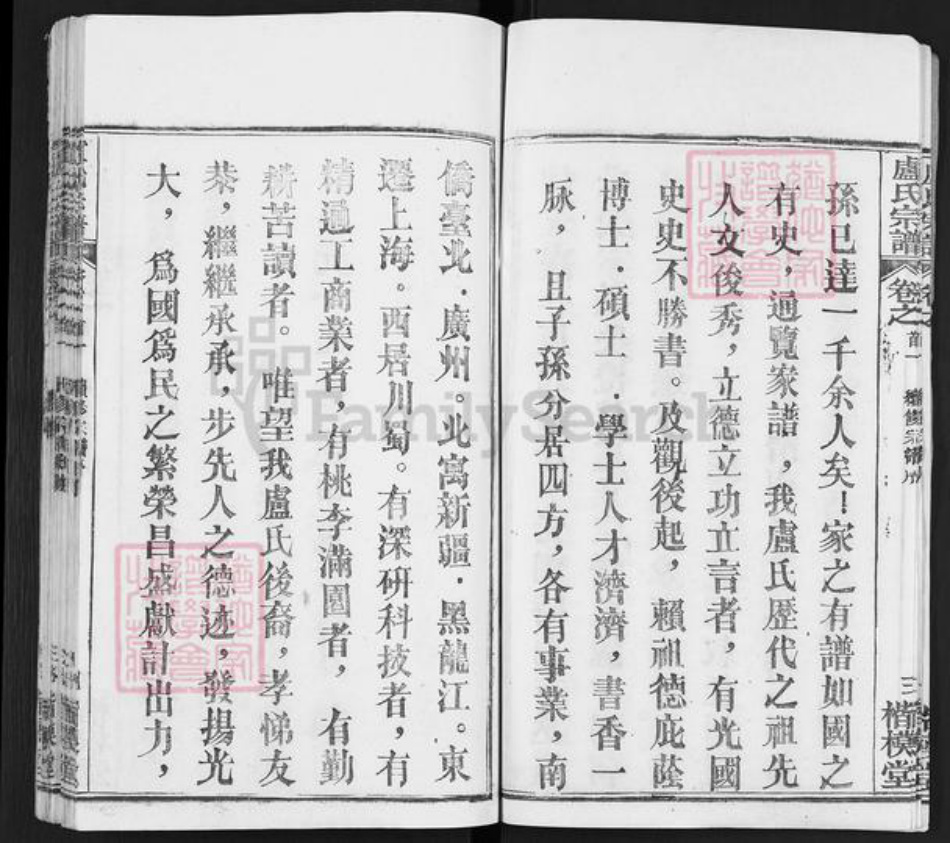 盧氏宗譜 卷之首一 續修宗譜序 三 楷模堂
孫已達一千余人矣！家之有譜如國之
有史，通覽家譜，我盧氏歷代之祖先
人文俊秀，立德立功立言者，有光國
史史不勝書。及觀後起，賴祖德庇蔭
博士．碩士．學士人才濟濟，書香一
脉，且子孫分居四方，各有事業，南
僑臺北．廣州。北寓新疆．黑龍江。東
遷上海。西居川蜀。有深研科技者，有
精通工商業者，有桃李滿園者，有勤
耕苦讀者。唯望我盧氏後裔，孝悌友
恭，繼繼承承，步先人之德迹，發揚光
大，爲國爲民之繁榮昌盛獻計出力，
FamilySearch